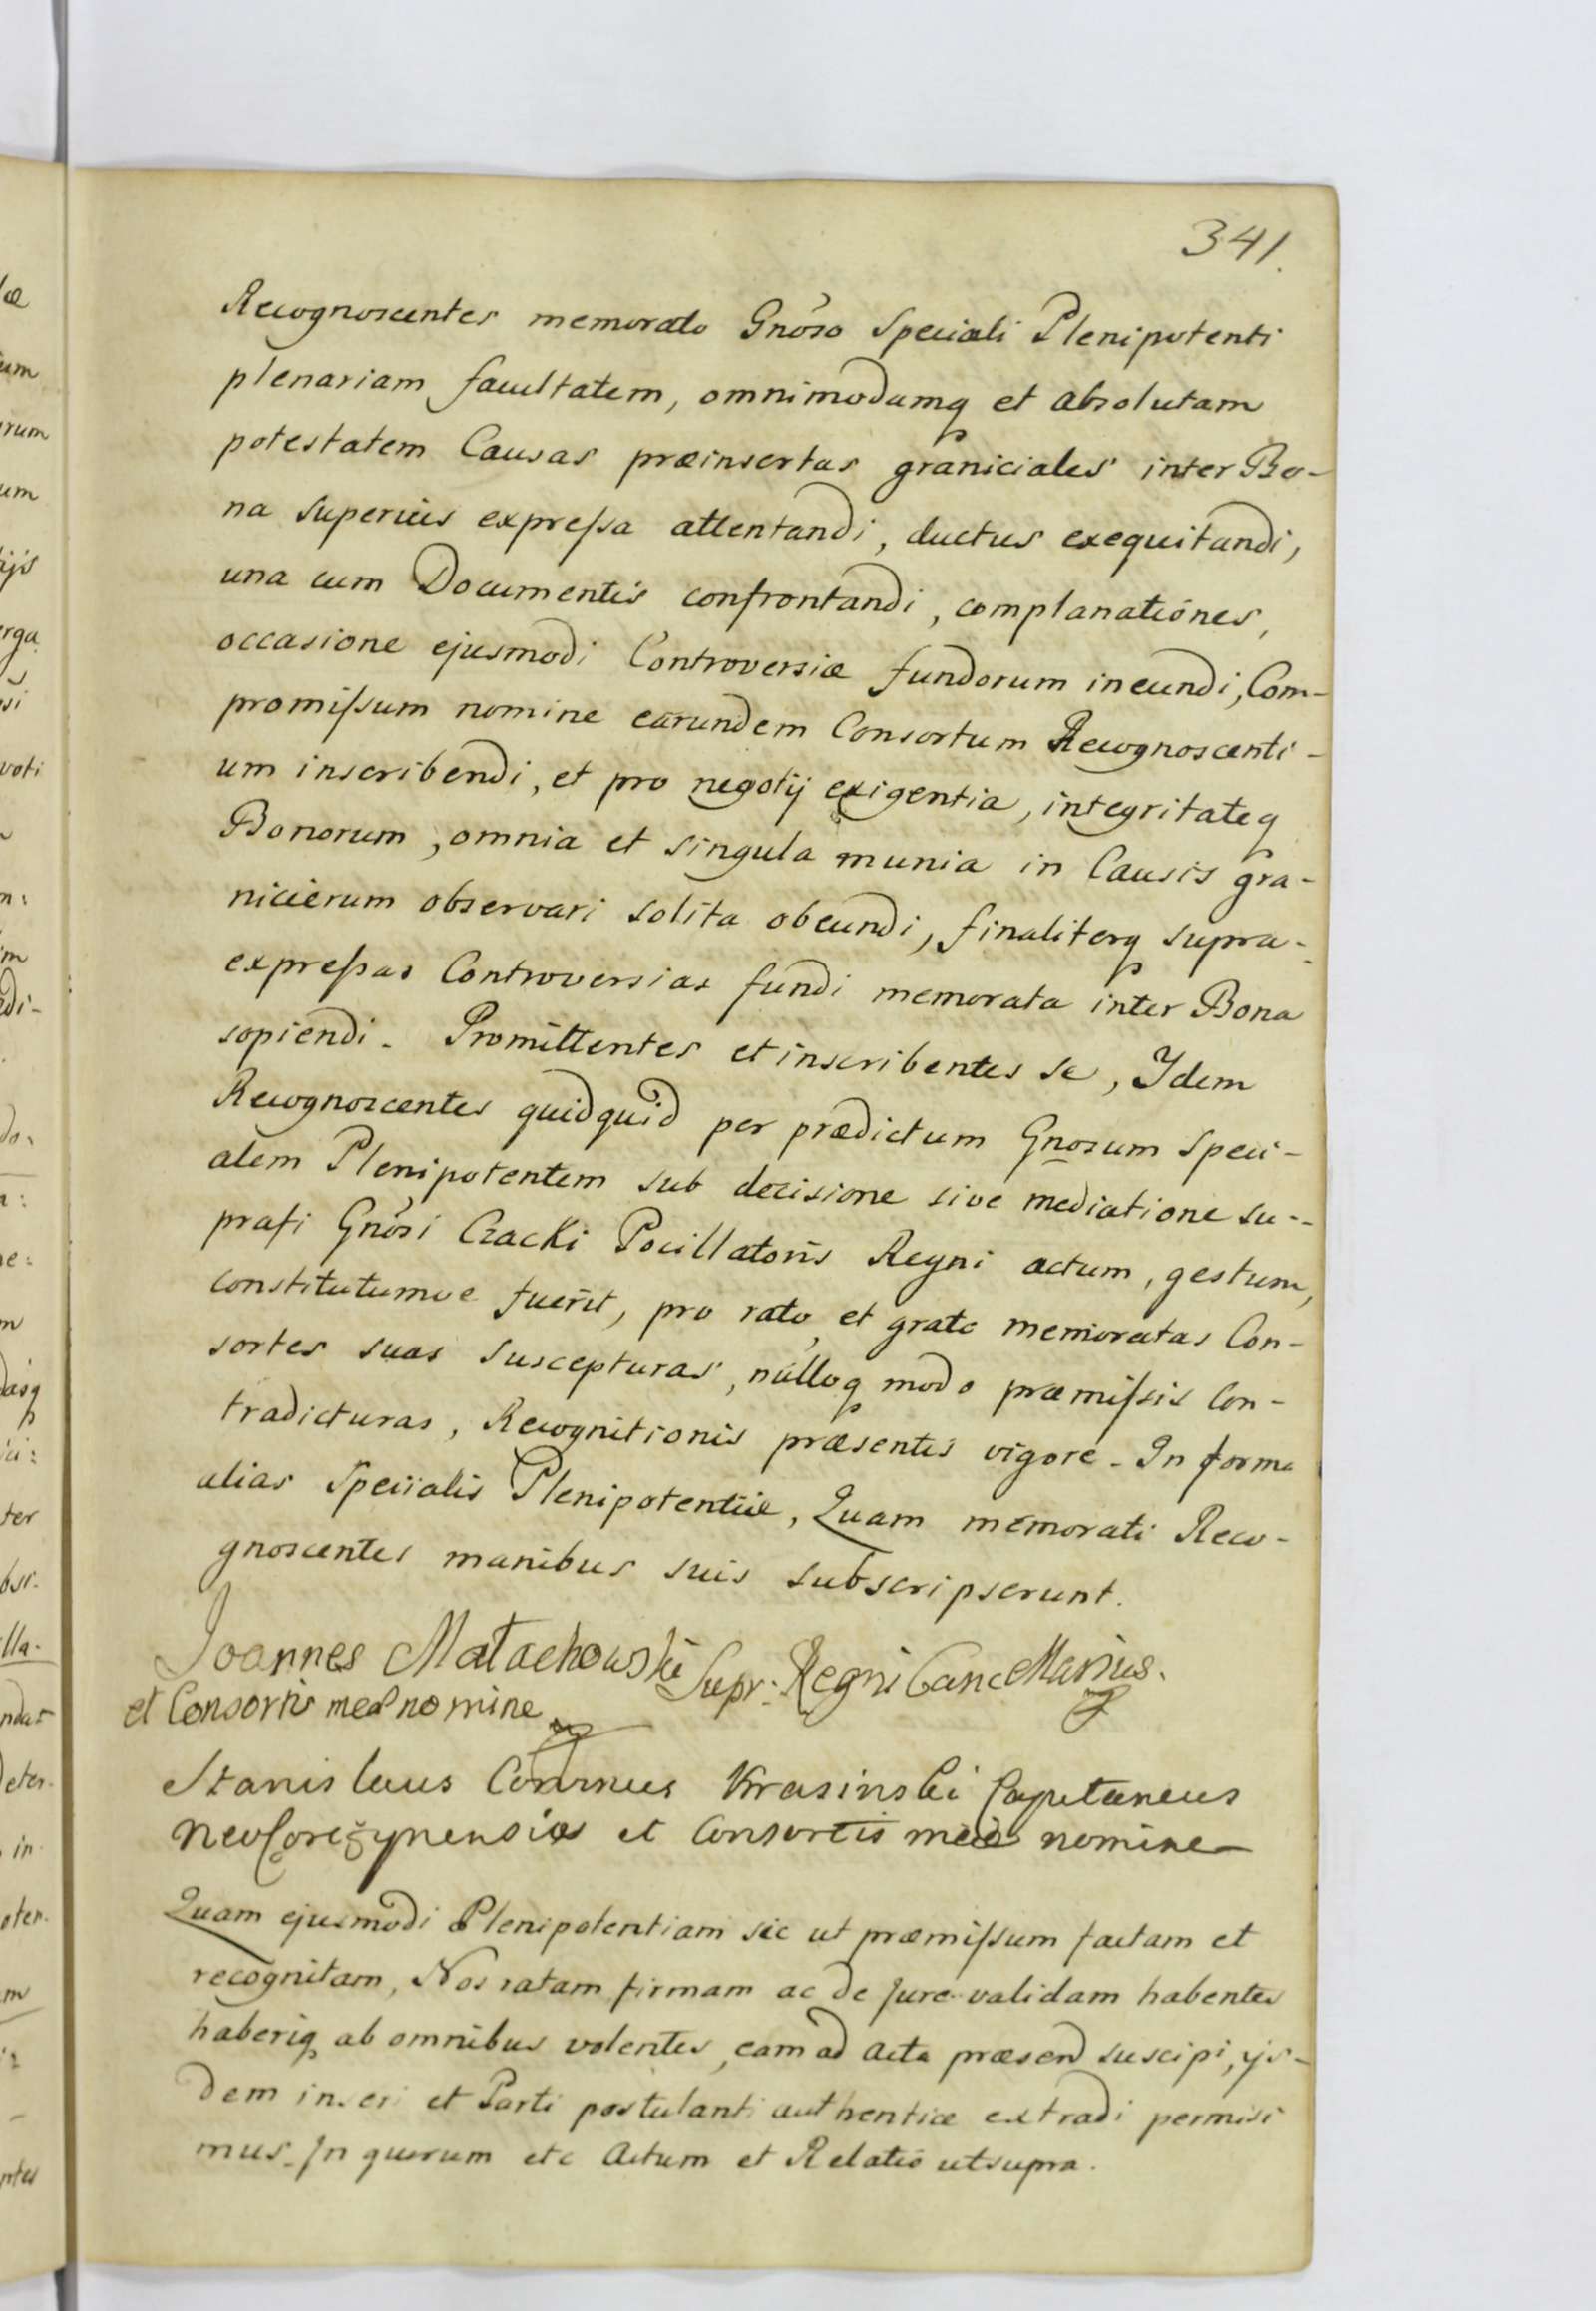 341.
Recognoscentes memorato Gnoso Speciali Plenipotenti
plenariam facultatem, omnimodamq et absolutam
potestatem Causas præinsertas graniciales inter Bo-
na superius expreſsa attentandi, ductus exequitandi,
una cum Documentis confrontandi, complanationes,
occasione ejusmodi Controversiæ fundorum ineundi, Com-
promiſsum nomine earundem Consortum Recognoscenti-
um inscribendi, et pro negotij exigentia, integritateq
Bonorum, omnia et singula munia in Causis gra-
nicierum observari solita obeundi, finaliterq supra-
expreſsas Controversias fundi memorata inter Bona
sopiendi. Promittentes et inscribentes se, Idem
Recognoscentes quidquid per prædictum Gnosum Speci-
alem Plenipotentem sub decisione sive mediatione su-
prati Gnosi Czacki Pocillatoris Regni actum, gestum,
constitutumve fuerit, pro rato, et grato memoratas Con-
sortes suas suscepturas, nulloq modo præmiſsis Con-
tradicturas, Recognitionis præsentis vigore. In forma
alias Specialis Plenipotentiæ, Quam memorati Reco-
gnoscentes manibus suis subscripserunt.
Joannes Małachowski Supr: Regni Cancellarius.
et Consortis meæ nomine
Stanislaus Corvinus Krasinski Capitaneus
NeoCorczynensis et Consortis meæ nomine
Quam ejusmodi Plenipotentiam sic ut præmiſsum factam et
recognitam, Nos ratam firmam ac de jure validam habentes
haberiq ab omnibus volentes, eam ad Acta præsend suscipi, ijs-
dem inseri et Parti postulanti authentice extradi permisi
mus. In quorum etc Actum et Relatio ut supra.